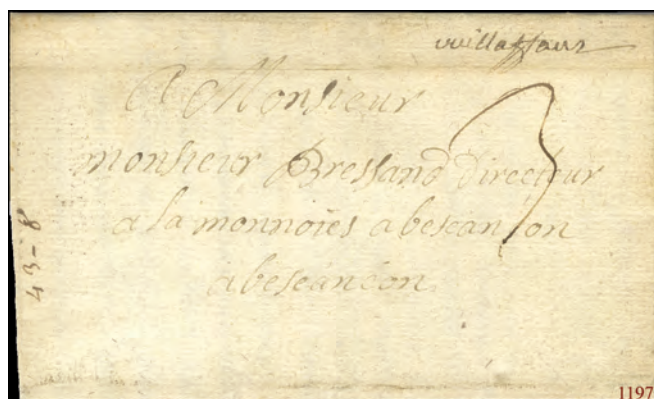 vuillaffans
A Monsieur
monsieur Bressand directeur
3
a la monnoies a besançon
a besancon
43-8
1197